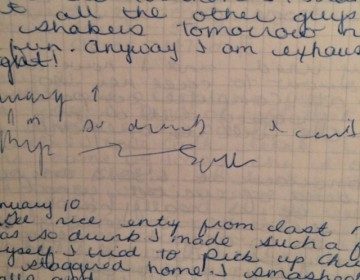 it all the other guys
shakers tomorrow n
fun. Anyway I am exhaus
ght!
nuary 9
I'm so drunk I can't
nuary 10
nice entry from last n
as so drunk I made such a f
myself I tried to pick up cha
staggered home. I smashed